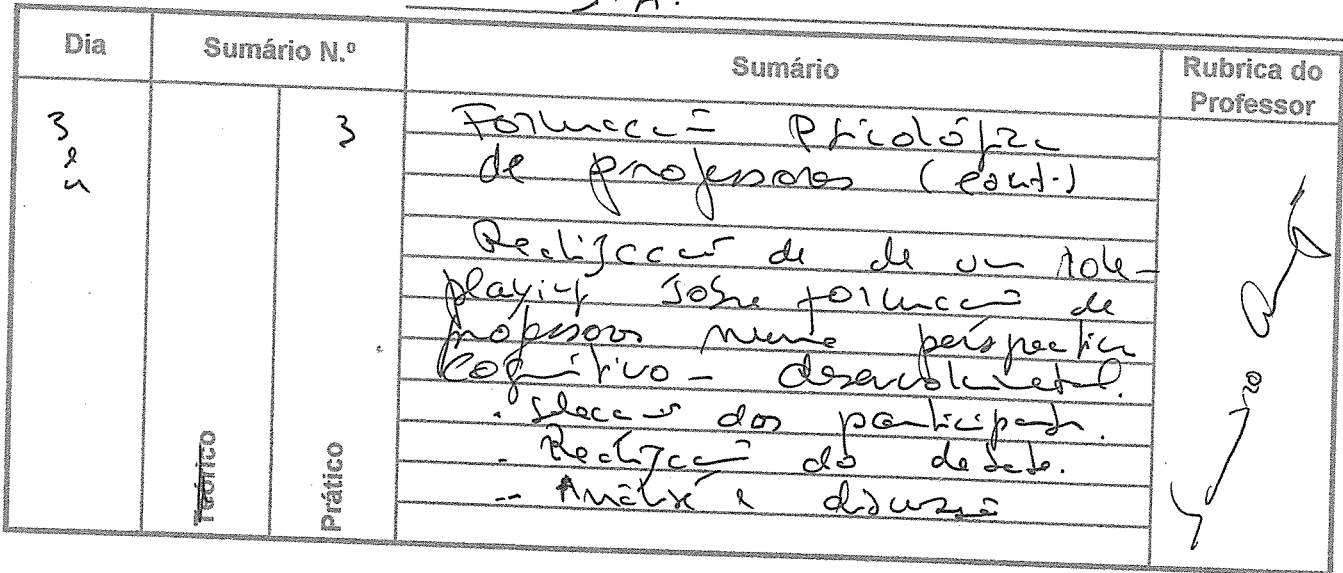 Dia Sumário N.º Sumário Rubrica do Professor
3 e 4
3
Formação Psicológica
de professores (cont.)
Realização de de um role-
playing sobre formação de
professores numa perspectiva
cognitivo - desenvolvimental.
. Selecção dos participantes.
- Realização do debate.
-- Análise e discussão
Teórico
Prático